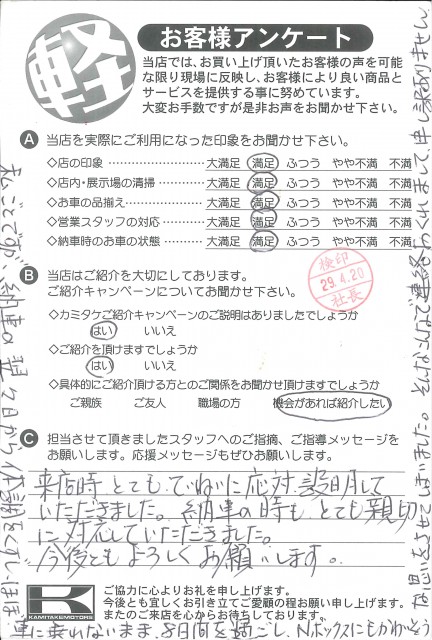 軽
お客様アンケート
当店では、お買い上げ頂いたお客様の声を可能
な限り現場に反映し、お客様により良い商品と
サービスを提供する事に努めています。
大変お手数ですが是非お声をお聞かせ下さい。
A 当店を実際にご利用になった印象をお聞かせ下さい。
◇店の印象 ………………… 大満足 満足 ふつう やや不満 不満
◇店内・展示場の清掃 ………… 大満足 満足 ふつう やや不満 不満
◇お車の品揃え ……………… 大満足 満足 ふつう やや不満 不満
◇営業スタッフの対応 ………… 大満足 満足 ふつう やや不満 不満
◇納車時のお車の状態 ………… 大満足 満足 ふつう やや不満 不満
B 当店はご紹介を大切にしております。
ご紹介キャンペーンについてお聞かせ下さい。
検印
29.4.20
社長
◇カミタケご紹介キャンペーンのご説明はありましたでしょうか
はい いいえ
◇ご紹介を頂けますでしょうか
はい いいえ
◇具体的にご紹介頂ける方とのご関係をお聞かせ頂けますでしょうか
ご親族 ご友人 職場の方 機会があれば紹介したい
C 担当させて頂きましたスタッフへのご指摘、ご指導メッセージを
お願いします。応援メッセージもぜひお願いします。
来店時とても、ていねいに応対、説明して
いただきました。納車の時も、とても親切
に対応していただきました。
今後ともよろしくお願いします。
K
KAMITAKEMOTORS
ご協力に心よりお礼を申し上げます。
今後とも宜しくお引き立てご愛顧の程お願い申し上げます。
またのご来店を心からお待ちしております。
私ごとですが、納車の翌々日から体調をくずし、ほぼ
車に乗れないまま、8日間を過ごし、Nボックスにもかわいそう
な思いをさせてしまいました。そんなこんなで連絡おくれまして申し訳ありません